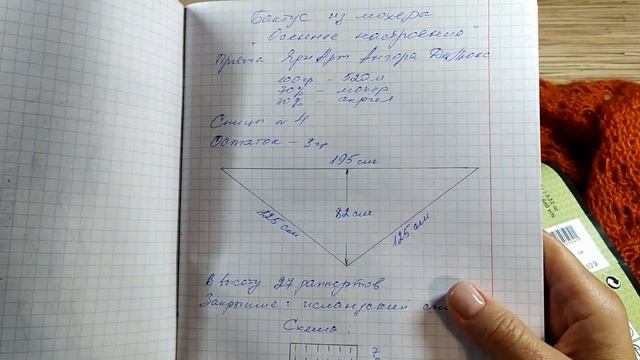 Бактус из мохера
"Осеннее настроение"
Пряжа ЯрнАрт Ангора Де Люкс
100гр - 520м
70% - мохер
30% - акрил
Спицы № 4
Остаток - 3гр
195 см
82 см
125 см
125 см
В высоту 27 раппортов
Закрытие: исландский
Схема:
7